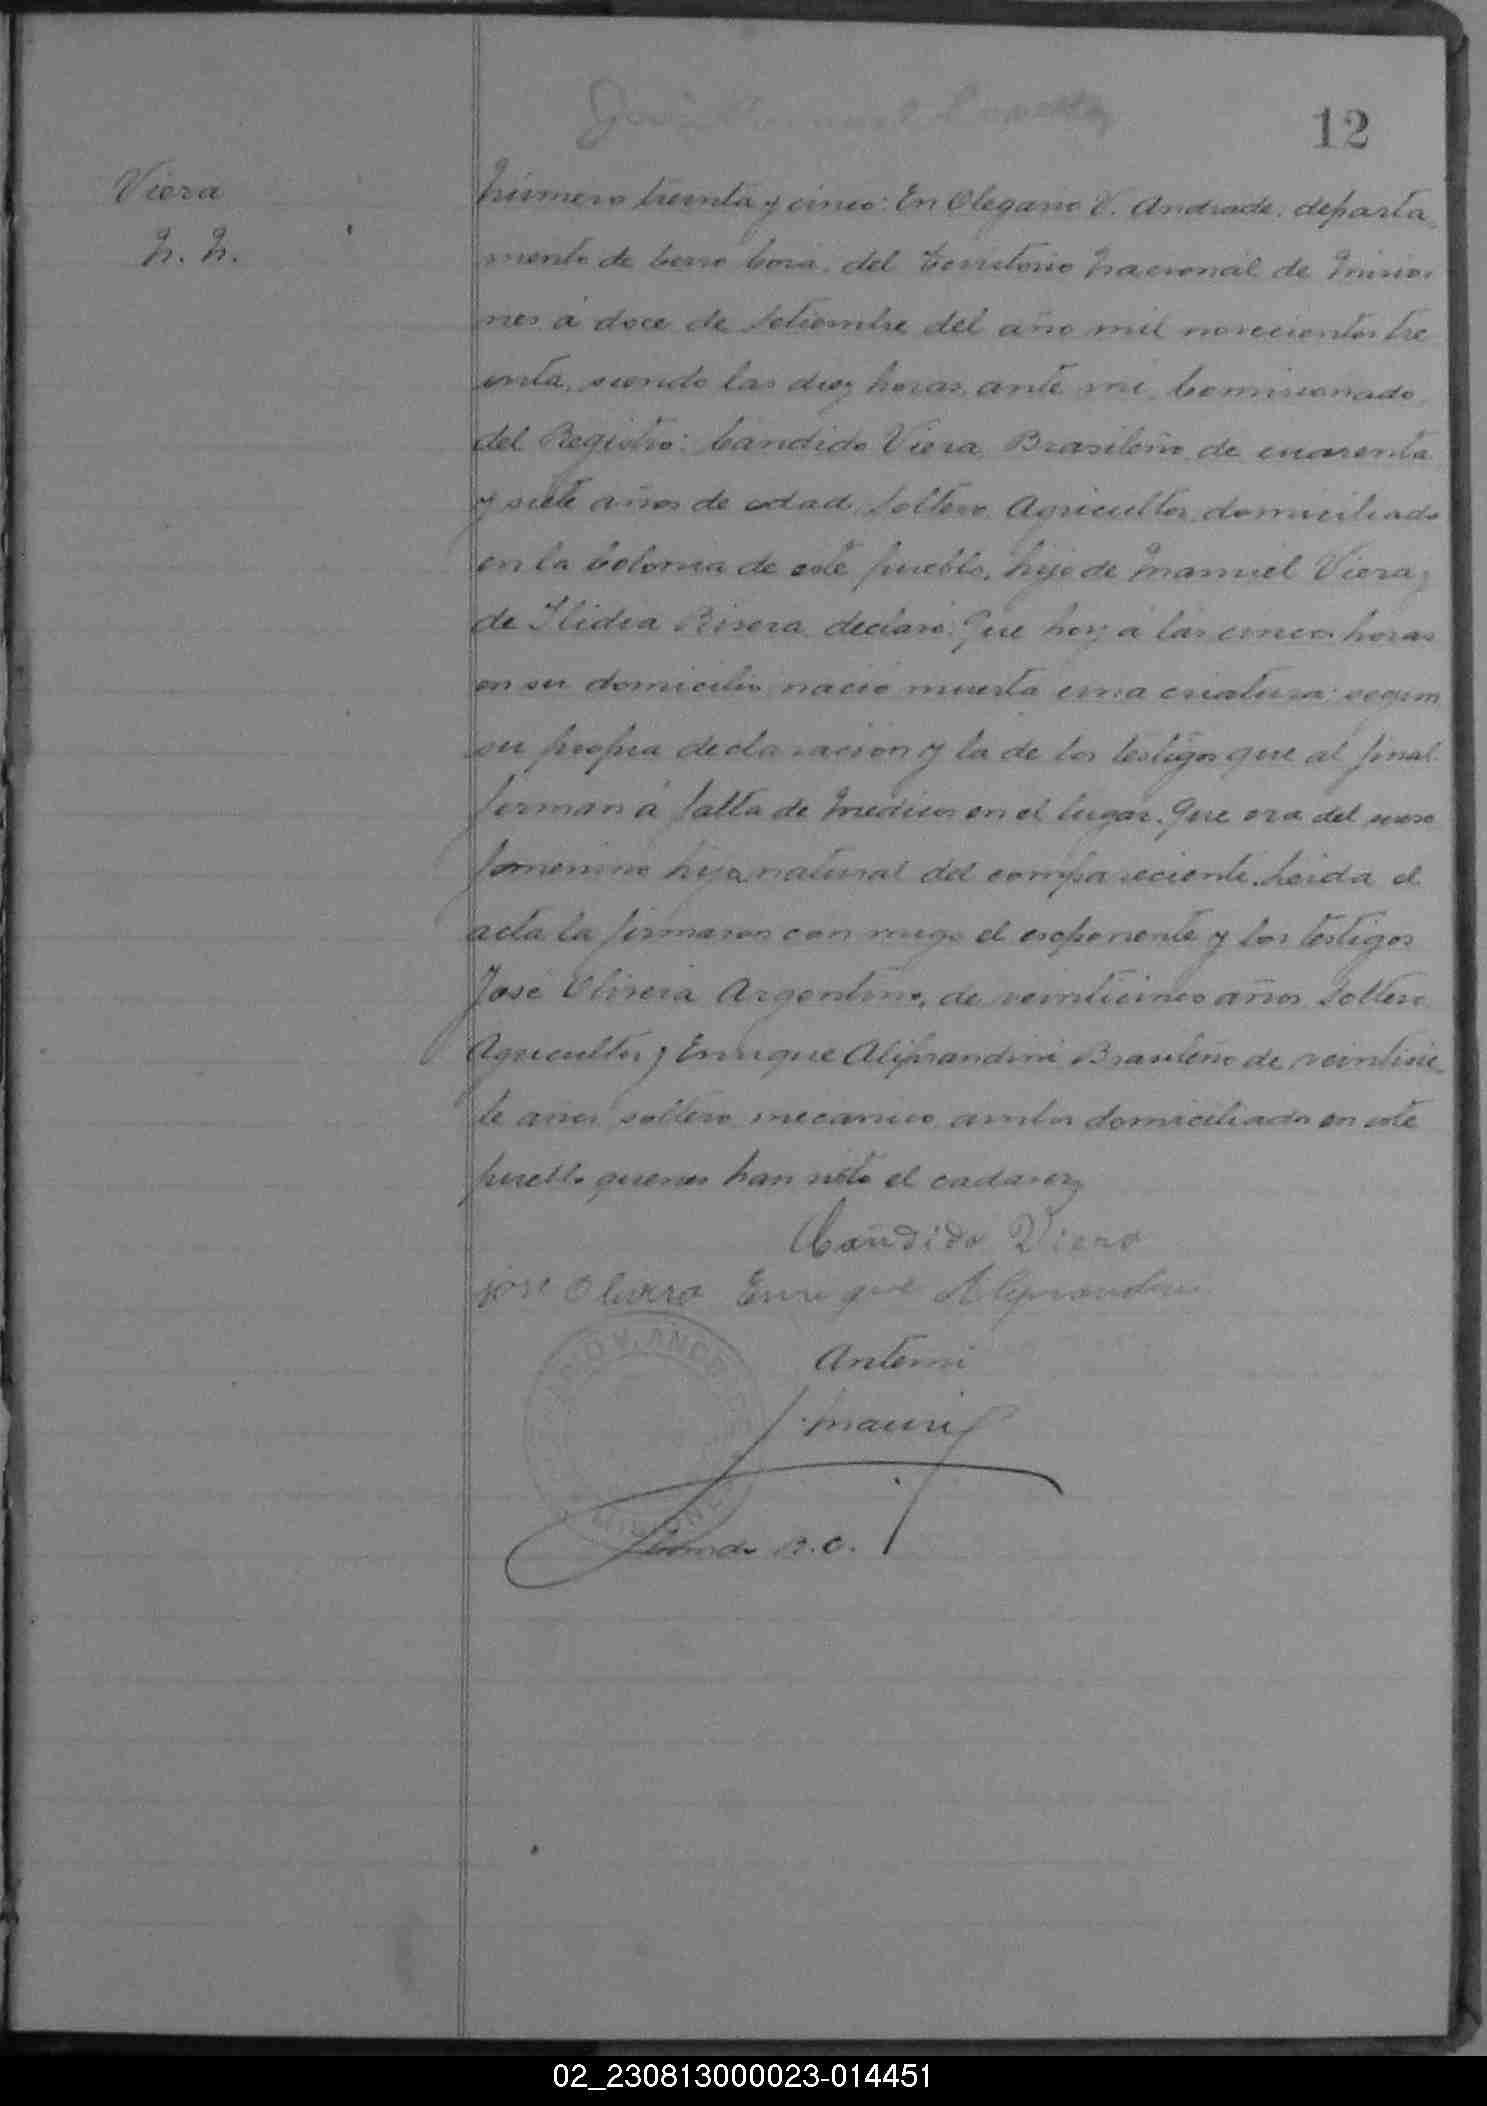 12
Viera
N. N.
Número treinta y cinco: En Olegario V. Andrade, departa-
mento de Cerro Corá, del Territorio Nacional de Misio-
nes á doce de Setiembre del año mil novecientos tre
inta, siendo las diez horas, ante mi, Comisionado
del Registro: Candido Viera, Brasileño, de cuarenta
y siete años de edad, Soltero, Agricultor, domiciliado
en la Colonia de este pueblo, hijo de Manuel Viera y
de Ilidia Rivera, declaró: Que hoy á las cinco horas
en su domicilio nació muerta una criatura: segun
su propia declaracion y la de los testigos que al final
firman á falta de Medicos en el lugar. Que era del sexo
femenino hija natural del compareciente. Leida el
acta la firmaron con migo el exponente y los testigos
José Olivera Argentino, de veinticinco años, Soltero
Agricultor y Enrique Aliprandini Brasileño de veintisie-
te años, soltero, mecanico, ambos domiciliados en este
pueblo quienes han visto el cadaver
Candido Viera
jose Olivera Enrique Aliprandini
Ante mi
Mauri
R.C.
MISIONES
02_230813000023-014451